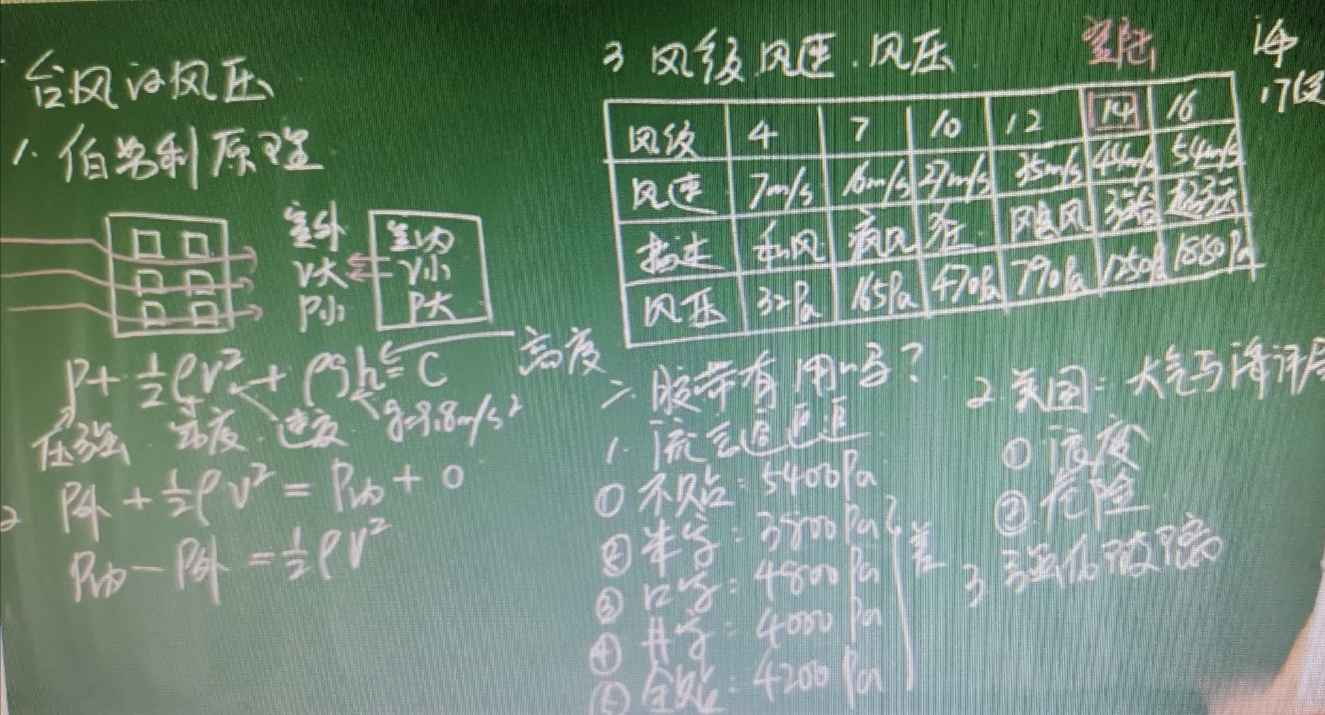 台风的风压
1. 伯努利原理
室外
V大
P小
室内
V小
P大
P + ½ρv² + ρgh = C
高度
压强 密度 速度 g=9.8m/s²
2 P外 + ½ρv² = P内 + 0
P内 − P外 = ½ρv²
3 风级.风速.风压
登陆
17级
风级 4 7 10 12 14 16
风速 7m/s 16m/s 27m/s 35m/s 44m/s 54m/s
描述 和风 疾风 狂 风暴风 强台 超强台
风压 32Pa 165Pa 470Pa 790Pa 1250Pa 1880Pa
二. 胶带有用吗?
1. 流言
① 不贴: 5400Pa
② 米字: 3800Pa
③ 口字: 4800Pa
④ 井字: 4000Pa
⑤ 全贴: 4200Pa
差
2. 美国: 大气与海洋局
① 浪费
② 危险
3 强化玻璃